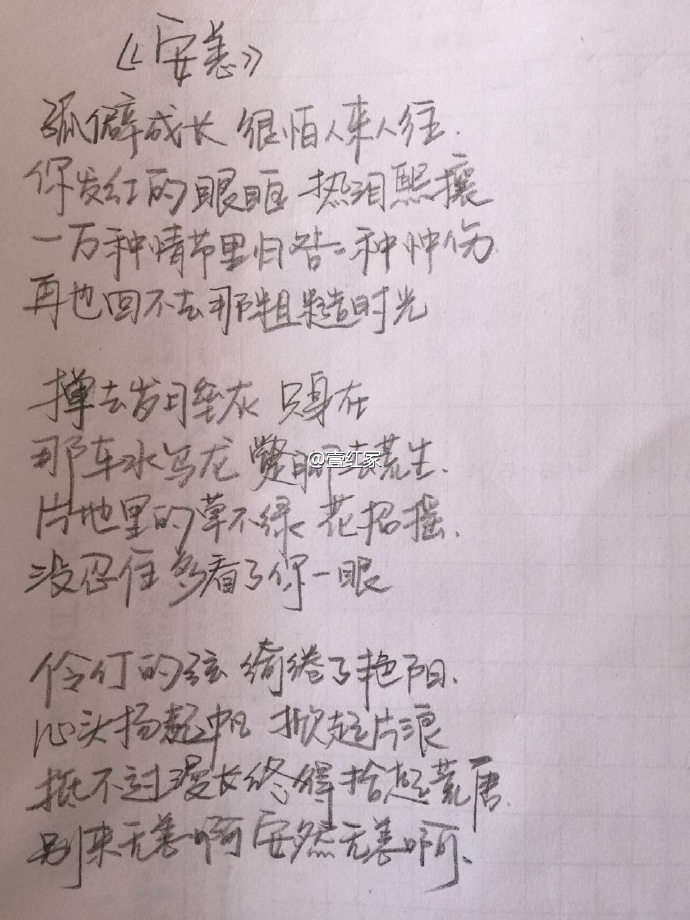 《安恙》
孤僻成长 很怕人来人往.
你发红的眼眶 热泪熙攘
一万种情节里归咎一种忡伤
再也回不去那粗糙时光
掸去岁月垒灰 只身在
那车水马龙 荒生.
@壹红家
片地里的草不绿 花招摇.
没忍住多看了你一眼
伶仃的弦 绮绻了艳阳.
心头扬起帆 掀起片浪
抵不过漫长终得拾起荒唐.
别来无恙啊 安然无恙啊.